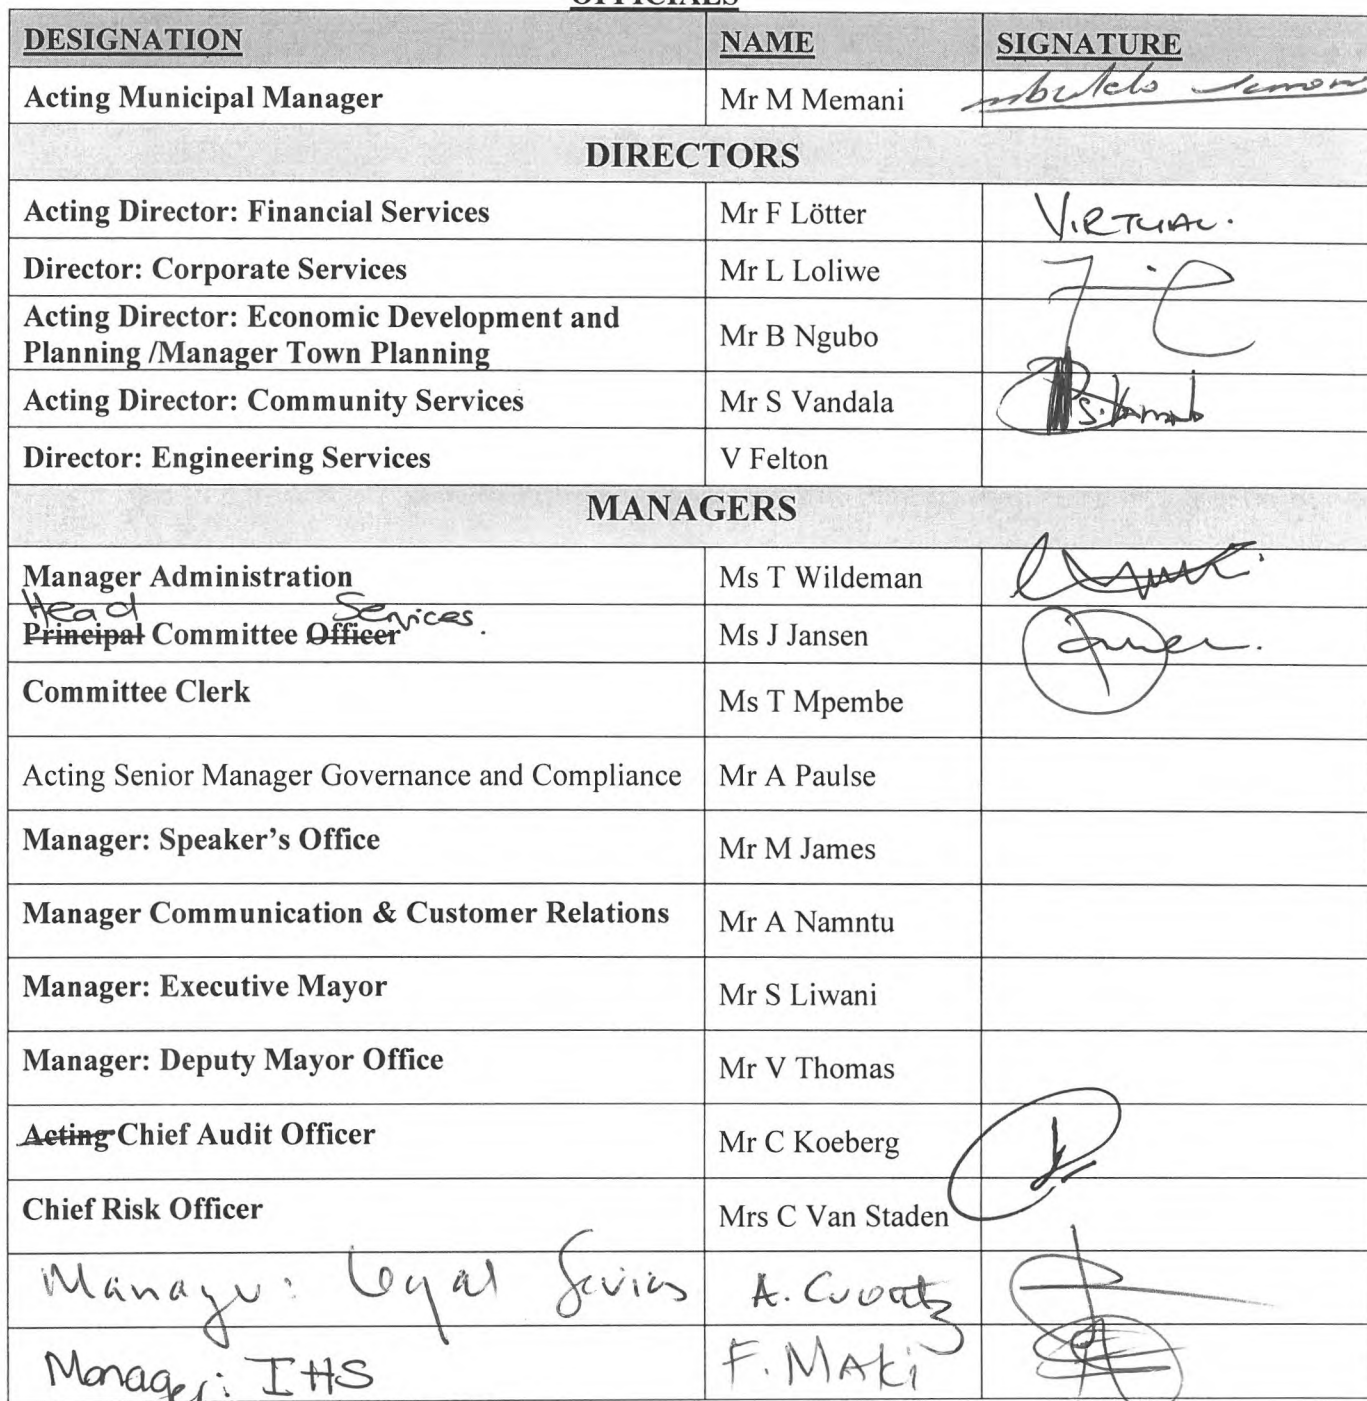 OFFICIALS
DESIGNATION NAME SIGNATURE
Acting Municipal Manager Mr M Memani
DIRECTORS
Acting Director: Financial Services Mr F Lötter VIRTUAL.
Director: Corporate Services Mr L Loliwe
Acting Director: Economic Development and
Planning /Manager Town Planning Mr B Ngubo
Acting Director: Community Services Mr S Vandala
Director: Engineering Services V Felton
MANAGERS
Manager Administration Ms T Wildeman
Head Services.
Principal Committee Officer Ms J Jansen
Committee Clerk Ms T Mpembe
Acting Senior Manager Governance and Compliance Mr A Paulse
Manager: Speaker’s Office Mr M James
Manager Communication & Customer Relations Mr A Namntu
Manager: Executive Mayor Mr S Liwani
Manager: Deputy Mayor Office Mr V Thomas
Acting Chief Audit Officer Mr C Koeberg
Chief Risk Officer Mrs C Van Staden
Manager: Legal Services A.
Manager: IHS F. MAKi